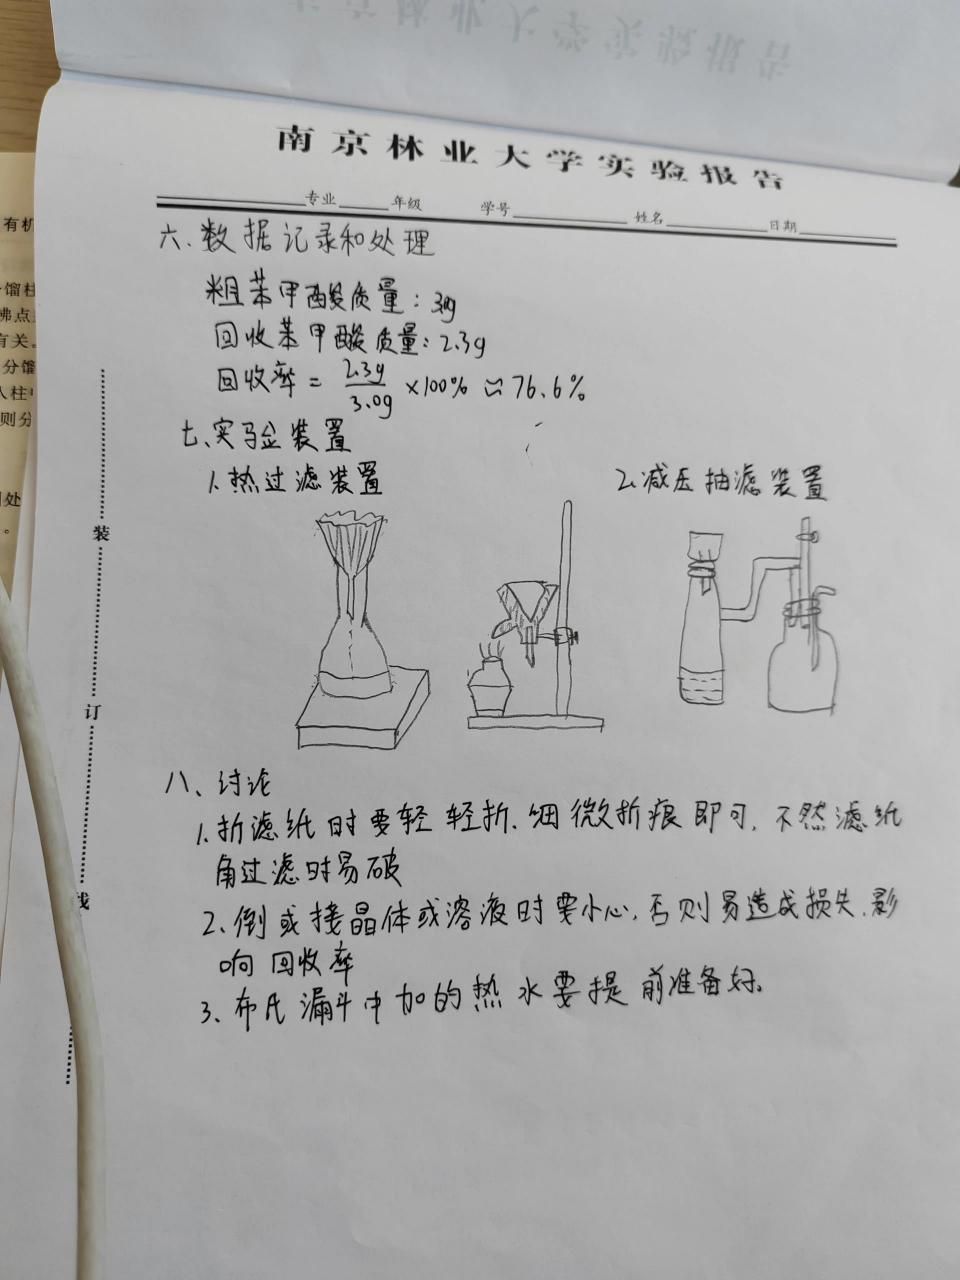 南京林业大学实验报告
南京林业大学实验报告
专业 年级 学号 姓名 日期
六、数据记录和处理
粗苯甲酸质量：3.0g
回收苯甲酸质量：2.3g
回收率 = 2.3g/3.0g ×100% ≈ 76.6%
七、实验装置
1、热过滤装置
2、减压抽滤装置
八、讨论
1、折滤纸时要轻轻折、细微折痕即可，不然滤纸
角过滤时易破
2、倒或接晶体或溶液时要小心，否则易造成损失、影
响回收率
3、布氏漏斗中加的热水要提前准备好。
装
订
线
有机
馏柱
沸点
有关。
分馏
入柱
则分
处
。